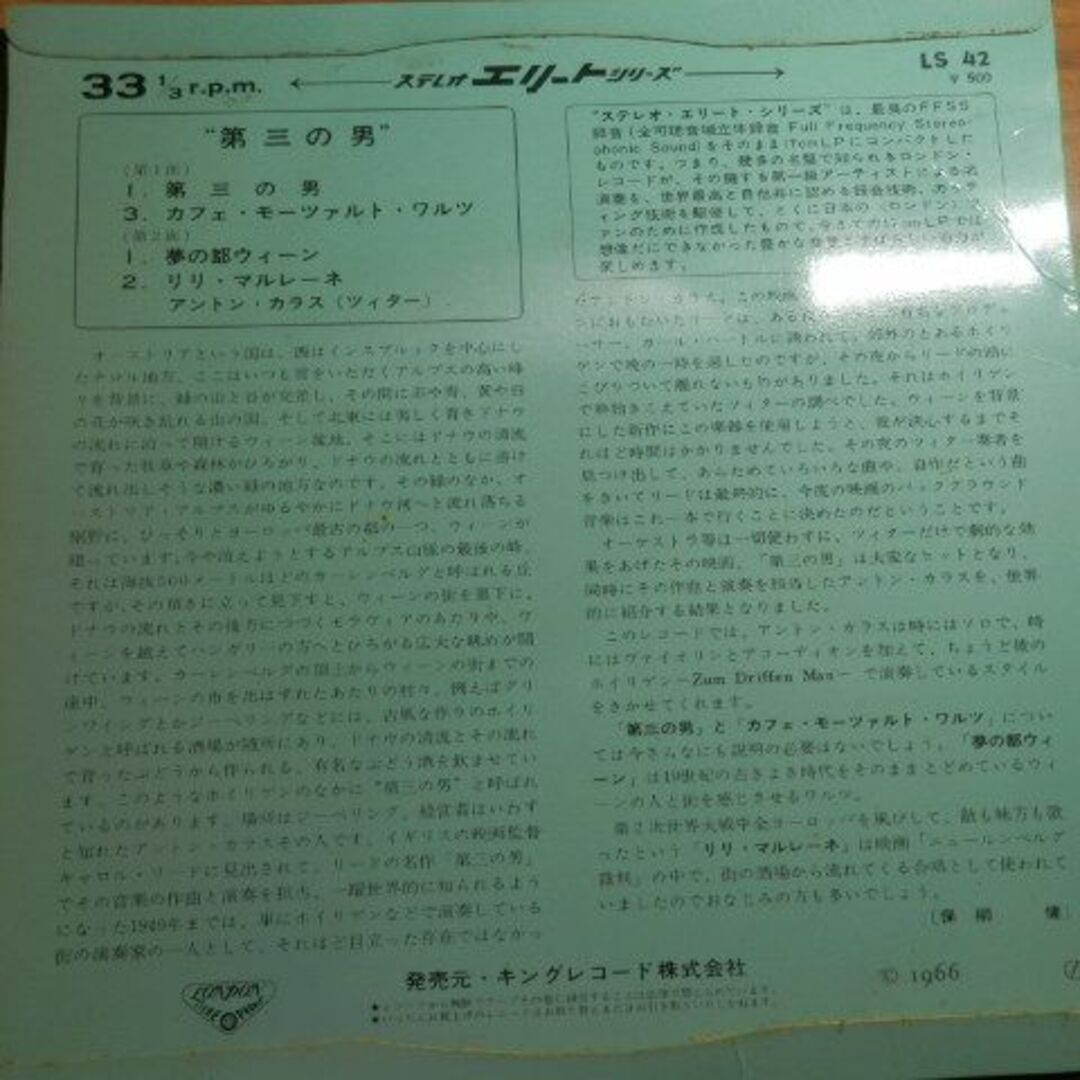 33 1/3 r.p.m.
ステレオ エリート シリーズ
LS 42
¥ 500
"第三の男"
(第1面)
1. 第三の男
3. カフェ・モーツァルト・ワルツ
(第2面)
1. 夢の都ウィーン
2. リリ・マルレーネ
アントン・カラス(ツィター)
"ステレオ・エリート・シリーズ"は、最高のFFSS
録音(全可聴音域立体録音 Full Frequency Stereo-
phonic Sound)をそのまま17cmLPにコンパクトした
ものです。つまり、幾多の名盤で知られるロンドン・
レコードが、その擁する第一線アーティストによる名
演奏を、世界最高と自他共に認める録音技術、カッテ
ィング技術を駆使して、とくに日本の〈ロンドン〉フ
ァンのために作成したもので、今までの17cmLPでは
想像だにできなかった豊かな音
楽しめます。
オーストリアという国は、西はインスブルックを中心にし
たチロル地方、ここはいつも雪をいただくアルプスの高い峰
々を背景に、緑の山と谷が交差し、その間に赤や青、黄や白
の花が咲き乱れる山の国、そして北東には美しく青きドナウ
の流れに沿って開けるウィーン盆地、そこにはドナウの清流
で育った牧草や森林がひろがり、ドナウの流れとともに溶け
て流れ出しそうな濃い緑の地方なのです。その緑のなか、オ
ーストリア・アルプスがゆるやかにドナウ河へと流れ落ちる
裾野に、ひっそりとヨーロッパ最古の都の一つ、ウィーンが
建っています。今や消えようとするアルプス山塊の最後の峰、
それは海抜500メートルほどのカーレンベルグと呼ばれる丘
ですが、その頂きに立って見下すと、ウィーンの街を眼下に、
ドナウの流れとその後方につづくモラヴィアのあたりや、ウ
ィーンを越えてハンガリーの方へとひろがる広大な眺めが開
けています。カーレンベルグの頂上からウィーンの街までの
途中、ウィーンの市を出はずれたあたりの村々、例えばグリ
ンツイングとかジーベリングなどには、古風な作りのホイリ
ゲンと呼ばれる酒場が随所にあり、ドナウの清流とその流れ
で育ったぶどうから作られる、有名なぶどう酒を飲ませてい
ます。このようなホイリゲンのなかに"第三の男"と呼ばれ
ているのがあります。場所はジーベリング、経営者はいわず
と知れたアントン・カラスその人です。イギリスの映画監督
キャロル・リードに見出されて、リードの名作「第三の男」
でその音楽の作曲と演奏を担当、一躍世界的に知られるよう
になった1949年までは、単にホイリゲンなどで演奏している
街の演奏家の一人として、それほど目立った存在ではなかっ
たアントン・カラス。この映画
ンにおもむいたリードは、ある
ーサー、カール・ハートルに誘われて、郊外のとあるホイリ
ゲンで晩の一時を過したのですが、その夜からリードの頭に
こびりついて離れないものがありました。それはホイリゲン
で時折きこえていたツィターの調べでした。ウィーンを背景
にした新作にこの楽器を使用しようと、彼が決心するまでそ
れほど時間はかかりませんでした。その夜のツィター奏者を
見つけ出して、あらためていろいろな曲や、自作だという曲
をきいてリードは最終的に、今度の映画のバックグラウンド
音楽はこれ一本で行くことに決めたのだということです。
オーケストラ等は一切使わずに、ツィターだけで劇的な効
果をあげたその映画、「第三の男」は大変なヒットとなり、
同時にその作曲と演奏を担当したアントン・カラスを、世界
的に紹介する結果となりました。
このレコードでは、アントン・カラスは時にはソロで、時
にはヴァイオリンとアコーディオンを加えて、ちょうど彼の
ホイリゲン－Zum Driffen Man－で演奏しているスタイル
をきかせてくれます。
「第三の男」と「カフェ・モーツァルト・ワルツ」につい
ては今さらなにも説明の必要はないでしょう。「夢の都ウィ
ーン」は19世紀の古きよき時代をそのままとどめているウィ
ーンの人と街を感じさせるワルツ。
第2次世界大戦中全ヨーロッパを風びして、敵も味方も歌
ったという「リリ・マルレーネ」は映画「ニュールンベルグ
裁判」の中で、街の酒場から流れてくる合唱として使われて
いましたのでおなじみの方も多いでしょう。
LONDON
発売元・キングレコード株式会社
© 1966